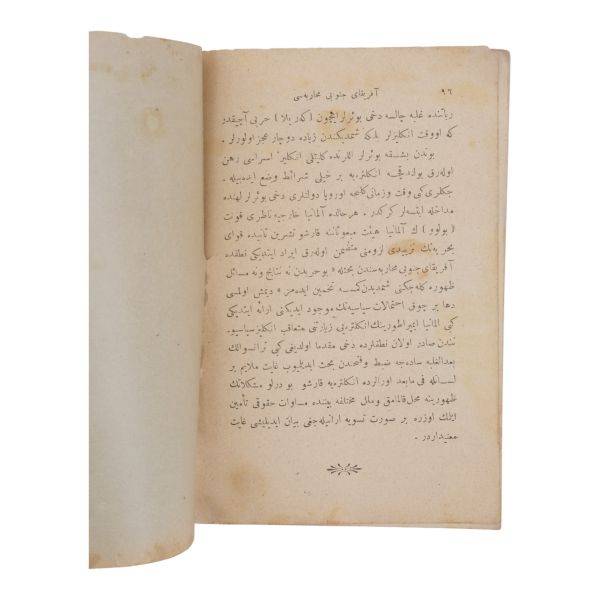 ٩٦ آفریقای جنوبی محاربه‌سی
غلبه چالسه دخی بوئرلر ایچون (که‌ر بلا) حربی آچیقدر
که اووقت انکلیزلر بلکه شمدیکندن زیاده دوچار عجز اولورلر .
بوندن بشقه بوئرلر اللرنده کلیتلی انکلیز اسراسی رهن
اوله‌رق بولندقجه انکلتره‌یه بر خیلی شرائط وضع ایده‌بیله
جکلری کبی وقت وزمانی کلنجه اوروپا دولتلری دخی بوئرلر لهنده
مداخله ایتسه‌لر کرکدر . هرحالده آلمانیا خارجیه ناظری قونت
(بولوو) ك آلمانیا هیئت مبعوثاننه قارشو تشرین ثانیده قوای
بحریه‌نك تزییدی لزومنی متضمن اوله‌رق ایراد ایتدیکی نطقنده
آفریقای جنوبی محاربه‌سندن بحثله « بوحربدن نه نتایج ونه مسائل
ظهوره کله‌جکنی شمدیدن کمسه تخمین ایده‌مز » دیمش اولمسی
دها بر چوق احتمالات سیاسیه‌نك موجود ایدیکنی ارائه ایتدیکی
کبی المانیا ایمپراطورینك انکلتره‌یی زیارتنی متعاقب انکلیز سیاسیو.
نندن صادر اولان نطقلرده دخی مقدما اولدیغی کبی ترانسوالك
بعدالغلبه ساده‌جه ضبط وفتحندن بحث ایدیلیوب غایت ملایم بر
لسانله فی مابعد اورالرده انکلتره‌یه قارشو بو درلو مشکلاتك
ظهورینه محل قالمامق وملل مختلفه بیننده مساوات حقوقی تأمین
ایتمك اوزره بر صورت تسویه ارانیله‌جغی بیان ایدیلیشی غایت
معنیداردر .